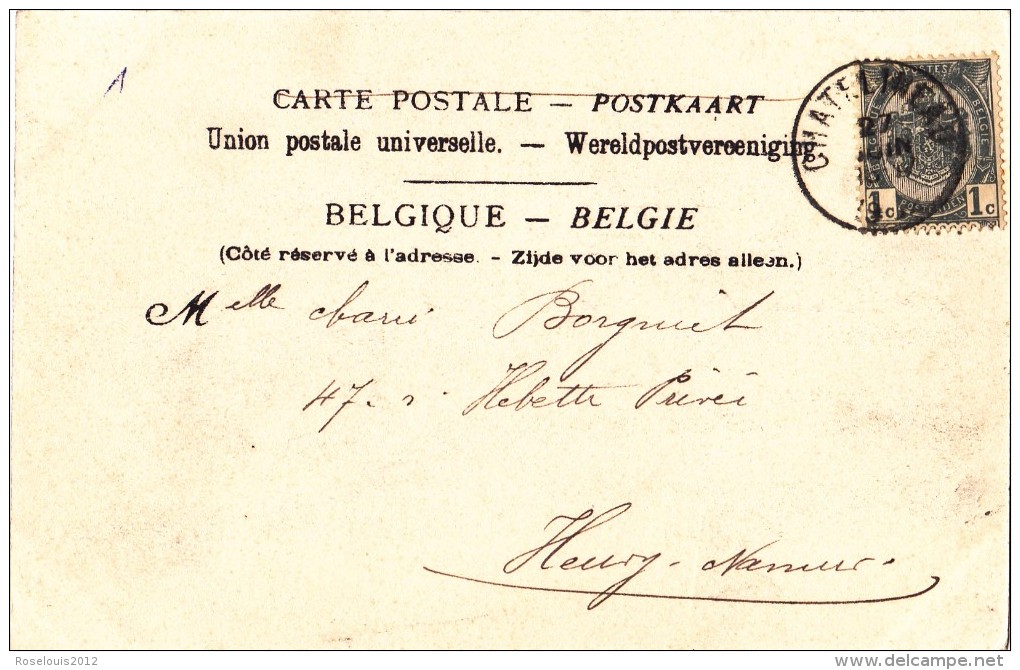 CARTE POSTALE — POSTKAART
Union postale universelle. — Wereldpostvereeniging
BELGIQUE — BELGIE
(Côté réservé à l'adresse. - Zijde voor het adres alleen.)
CHATELINEAU
27
JUIN
POSTES
BELGIQUE
BELGIE
POSTERIJEN
1c 1c
Melle Marie Borgniet
47. r. Hebette Privée
Heuvy. Namur.
Roselouis2012
www.delcampe.net